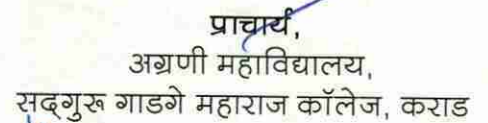 प्राचार्य,
अग्रणी महाविद्यालय,
सद्‌गुरू गाडगे महाराज कॉलेज, कराड